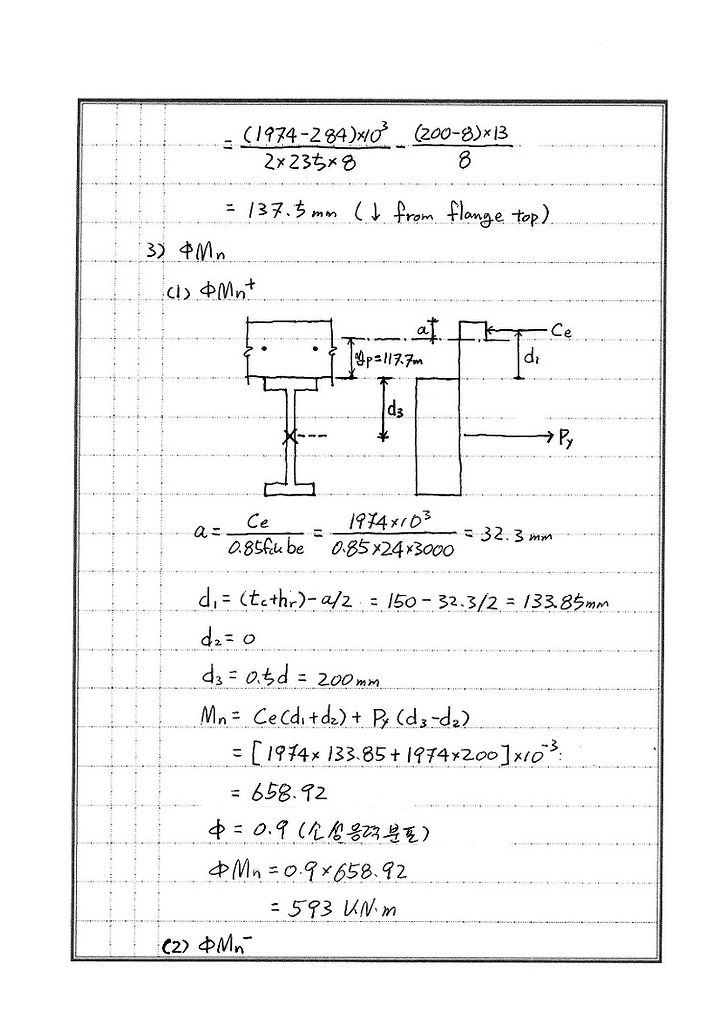 = (1974-284)×10³ / 2×235×8 - (200-8)×13 / 8
= 137.5mm (↓ from flange top)
3) ΦMn
(1) ΦMn⁺
a Ce
yp=117.7m d₁
d₃
Py
a = Ce / 0.85fck be = 1974×10³ / 0.85×24×3000 = 32.3mm
d₁ = (tc+hr)-a/2 = 150-32.3/2 = 133.85mm
d₂ = 0
d₃ = 0.5d = 200mm
Mn = Ce(d₁+d₂) + Py(d₃-d₂)
= [1974×133.85+1974×200]×10⁻³
= 658.92
Φ = 0.9 (소성응력분포)
ΦMn = 0.9×658.92
= 593 kN·m
(2) ΦMn⁻